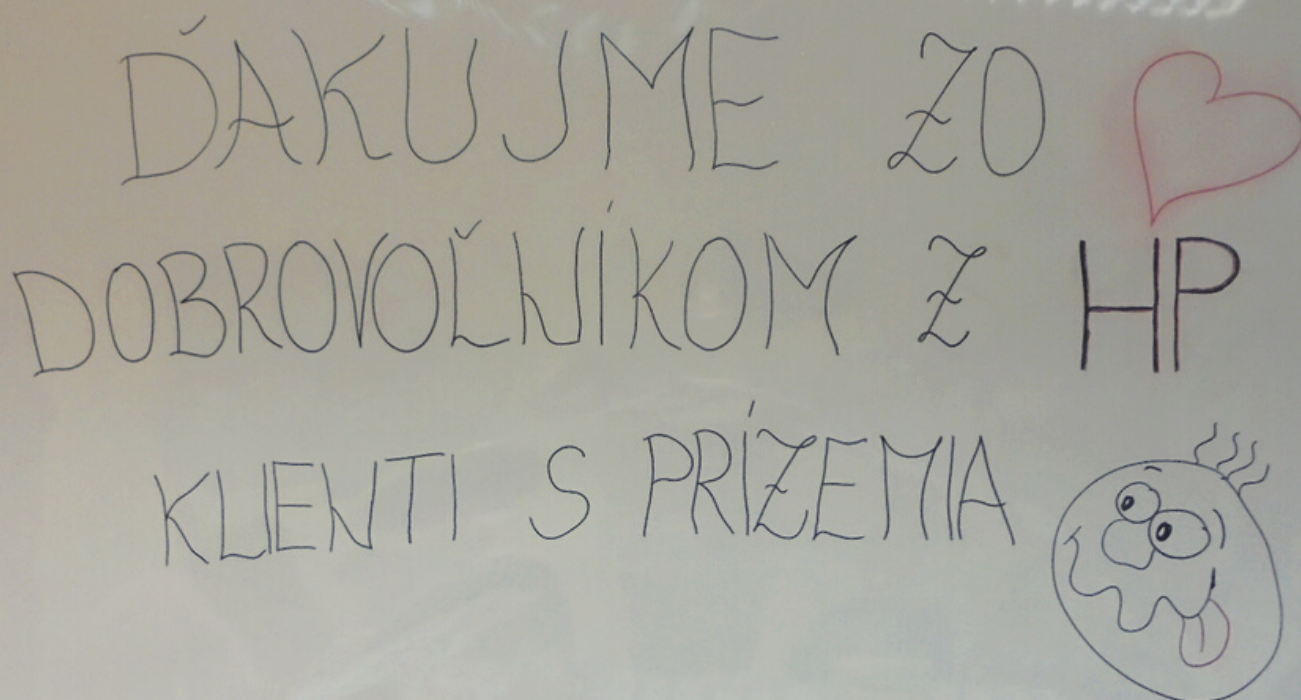 ĎAKUJME ZO
DOBROVOĽNÍKOM Z HP
KLIENTI S PRÍZEMIA